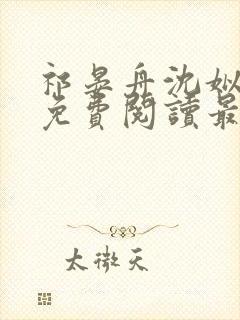 祁晏舟沈姒
免費閱讀最
太微天